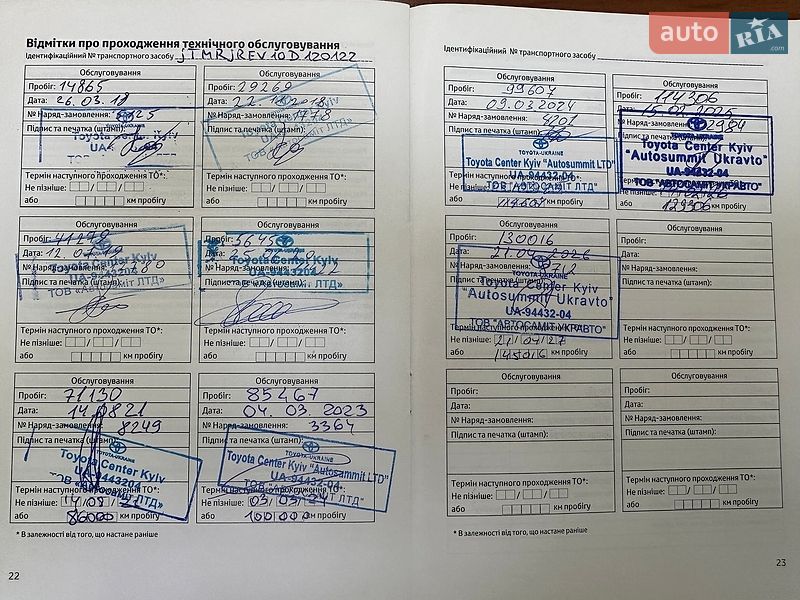 auto RIA.com
Відмітки про проходження технічного обслуговування
Ідентифікаційний № транспортного засобу JTMRJREV10D120122
Обслуговування
Пробіг: 14865
Дата: 26.03.18
№ Наряд-замовлення:
Підпис та печатка (штамп):
UA
Термін наступного проходження ТО*:
Не пізніше:
або км пробігу
Обслуговування
Пробіг: 29269
Дата: 22.
№ Наряд-замовлення:
Підпис та печатка (штамп):
Термін наступного проходження ТО*:
Не пізніше:
або км пробігу
Обслуговування
Пробіг:
Дата: 12.
№ Наряд-замовлення:
Підпис та печатка (штамп):
Toyota Center Kyiv
UA-9443204
ТОВ «Автосаміт ЛТД»
Термін наступного проходження ТО*:
Не пізніше:
або км пробігу
Обслуговування
Пробіг:
Дата:
№ Наряд-замовлення:
Підпис та печатка (штамп):
Toyota Center Kyiv
UA-9443204
Термін наступного проходження ТО*:
Не пізніше:
або км пробігу
Обслуговування
Пробіг: 71130
Дата: 14.08.21
№ Наряд-замовлення: 8249
Підпис та печатка (штамп):
TOYOTA-UKRAINE
Toyota Center Kyiv
UA-9443204
Термін наступного проходження ТО*:
Не пізніше: 14/08/
або 86000 км пробігу
Обслуговування
Пробіг: 85467
Дата: 04.03.2023
№ Наряд-замовлення: 3364
Підпис та печатка (штамп):
TOYOTA-UKRAINE
Toyota Center Kyiv "Autosummit LTD"
UA-94432-04
ТОВ "АВТОСАМІТ ЛТД"
Термін наступного проходження ТО*:
Не пізніше: 03/03/24
або 100000 км пробігу
* В залежності від того, що настане раніше
22
Ідентифікаційний № транспортного засобу
Обслуговування
Пробіг: 99607
Дата: 09.03.2024
№ Наряд-замовлення: 4201
Підпис та печатка (штамп):
TOYOTA-UKRAINE
Toyota Center Kyiv "Autosummit LTD"
UA-94432-04
ТОВ "АВТОСАМІТ ЛТД"
або 114607 км пробігу
Обслуговування
Пробіг: 114306
Дата: 15.02.2025
№ Наряд-замовлення: 2984
Підпис та печатка
Toyota Center Kyiv
"Autosummit Ukravto"
UA-94432-04
ТОВ "АВТОСАМІТ УКРАВТО"
або 129306 км пробігу
Обслуговування
Пробіг: 130016
Дата: 21.04.2026
№ Наряд-замовлення:
Підпис та печатка
TOYOTA-UKRAINE
Toyota Center Kyiv
"Autosummit Ukravto"
UA-94432-04
ТОВ "АВТОСАМІТ УКРАВТО"
Термін наступного проходження ТО*:
Не пізніше: 21/04/27
або 145016 км пробігу
Обслуговування
Пробіг:
Дата:
№ Наряд-замовлення:
Підпис та печатка (штамп):
Термін наступного проходження ТО*:
Не пізніше:
або км пробігу
Обслуговування
Пробіг:
Дата:
№ Наряд-замовлення:
Підпис та печатка (штамп):
Термін наступного проходження ТО*:
Не пізніше:
або км пробігу
Обслуговування
Пробіг:
Дата:
№ Наряд-замовлення:
Підпис та печатка (штамп):
Термін наступного проходження ТО*:
Не пізніше:
або км пробігу
* В залежності від того, що настане раніше
23